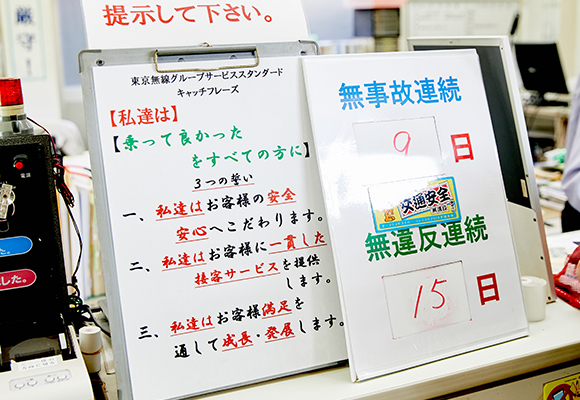 厳守!
提示して下さい。
東京無線グループサービススタンダード
キャッチフレーズ
【私達は】
【乗って良かった
をすべての方に】
3つの誓い
一、私達はお客様の安全
安心へこだわります。
二、私達はお客様に一貫した
接客サービスを提供
します。
三、私達はお客様満足を
通して成長・発展します。
無事故連続
9日
交通安全
無違反連続
15日
した。